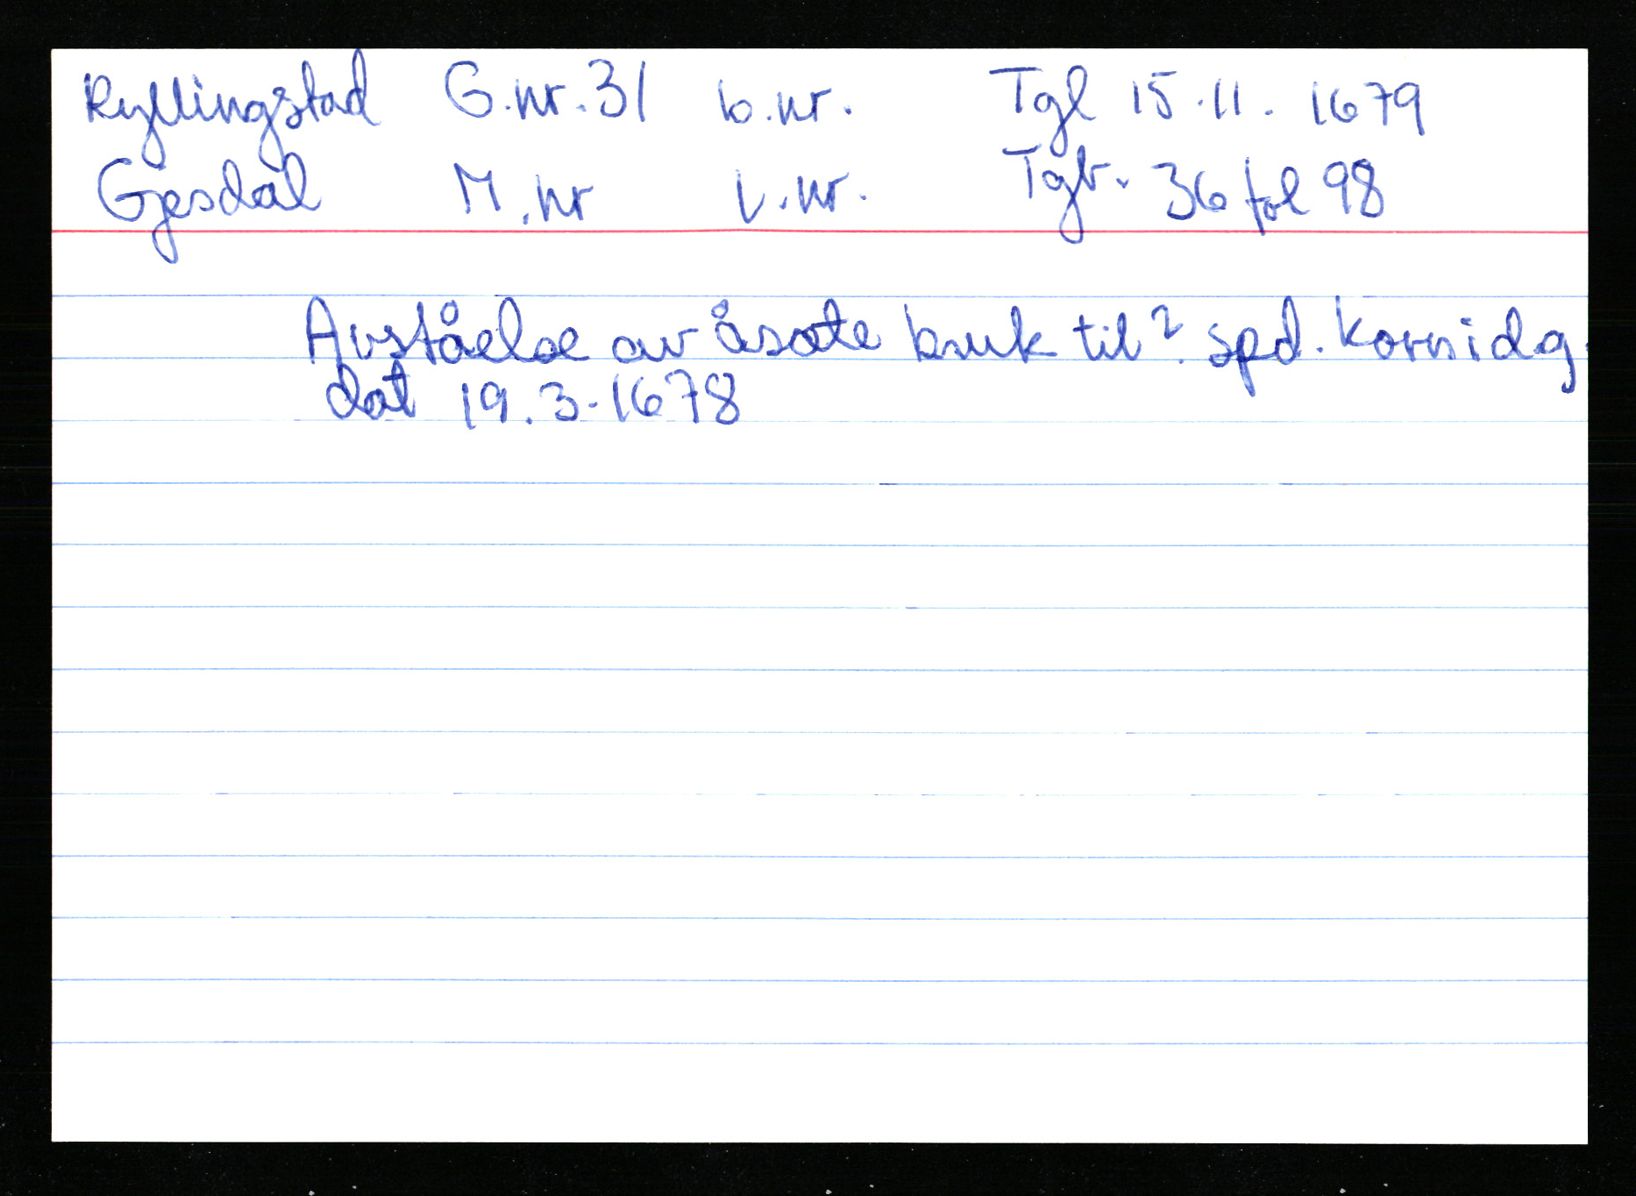 Kyllingstad G.nr. 31 b.nr. Tgl 15.11. 1679
Gjesdal M.nr L.nr. Tgb. 36 fol 98
Avståelse av åsæte bruk til ? spd. kornidg.
dat 19.3.1678